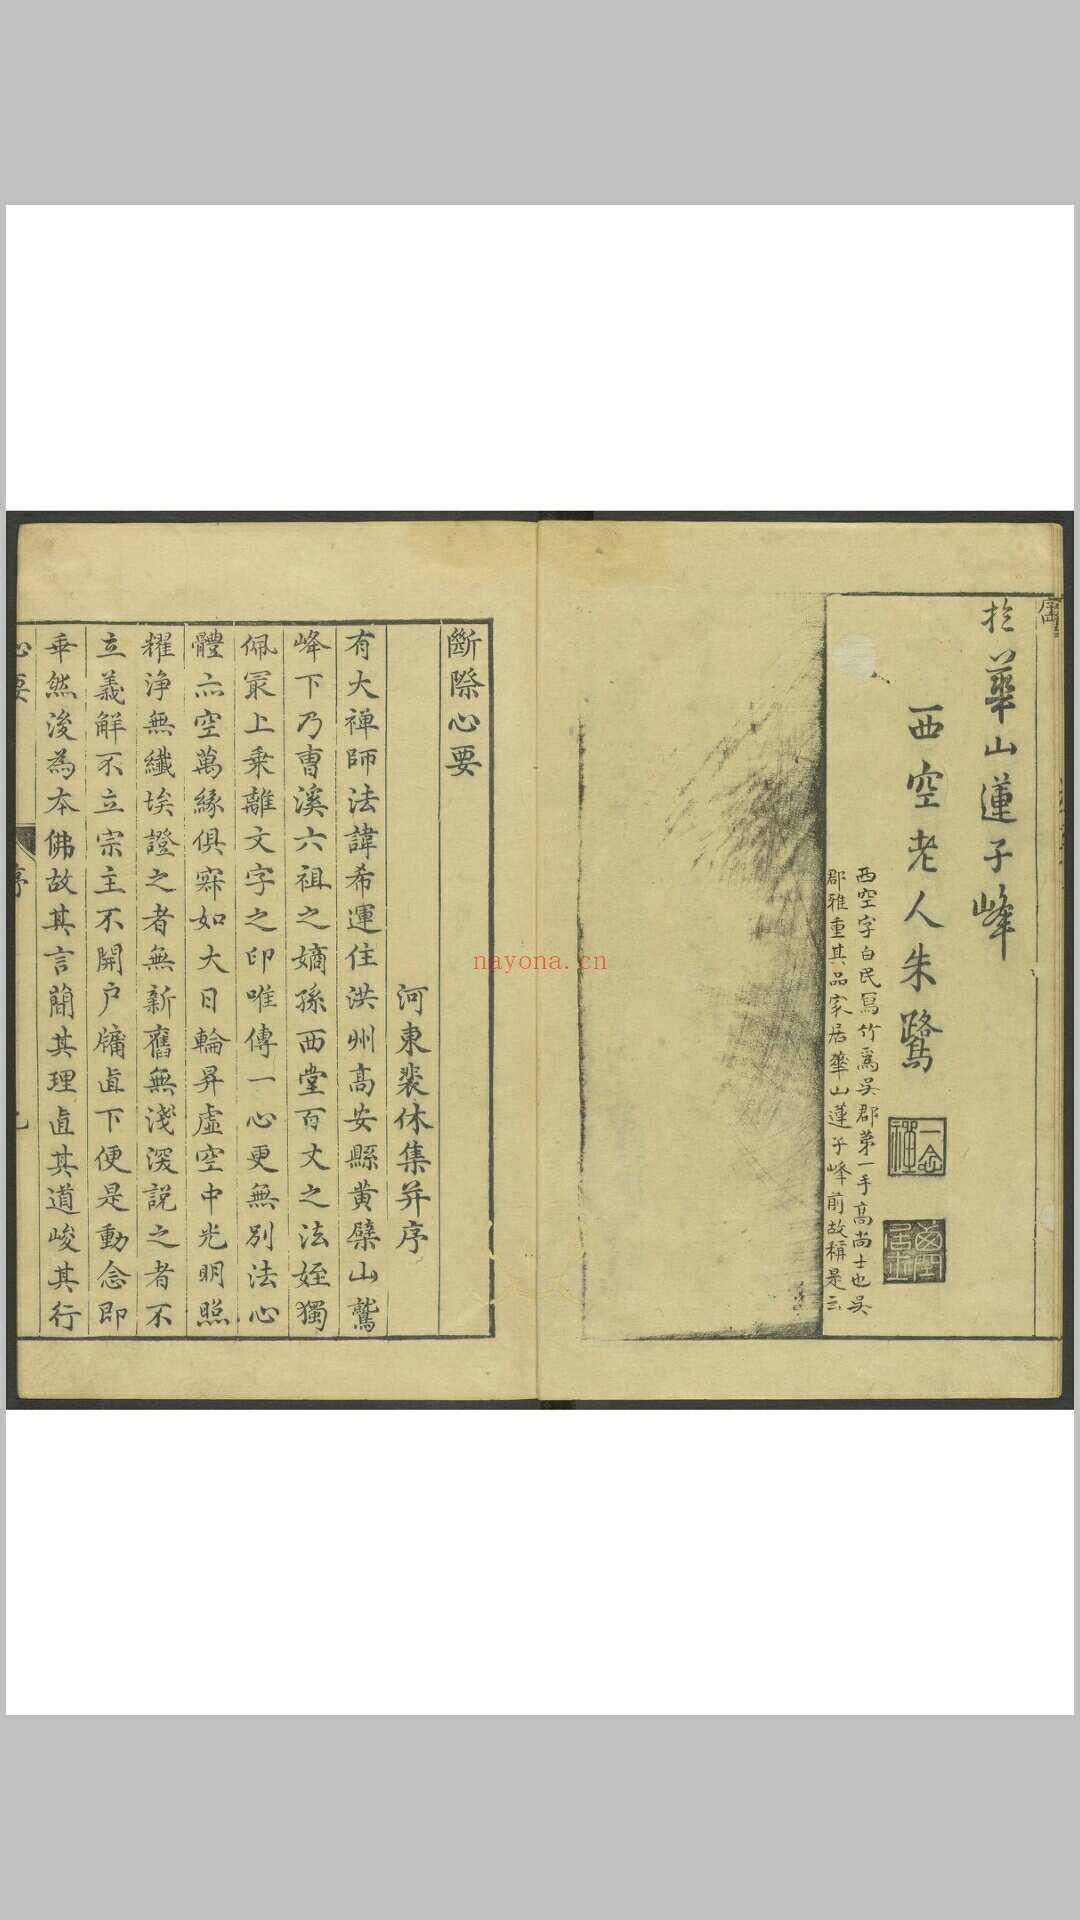 於華山蓮子峰
西空老人朱鷺
西空字白民寫竹爲吳郡第一手高尚士也吳
郡雅重其品家居華山蓮子峰前故稱是云
斷際心要
河東裴休集并序
有大禪師法諱希運住洪州高安縣黄檗山鷲
峰下乃曹溪六祖之嫡孫西堂百丈之法姪獨
佩㝡上乘離文字之印唯傳一心更無別法心
體亦空萬緣俱寂如大日輪昇虛空中光明照
耀浄無纖埃證之者無新舊無淺深説之者不
立義解不立宗主不開户牖直下便是動念即
乖然後為本佛故其言簡其理直其道峻其行
心要
序
nayona.cn